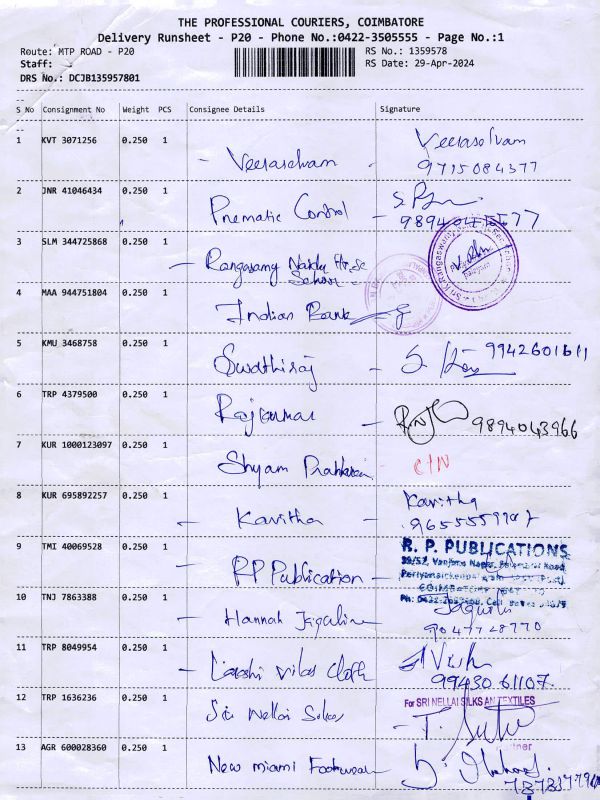 THE PROFESSIONAL COURIERS, COIMBATORE
Delivery Runsheet - P20 - Phone No.:0422-3505555 - Page No.:1
Route: MTP ROAD - P20 RS No.: 1359578
Staff: RS Date: 29-Apr-2024
DRS No.: DCJB135957801
S No Consignment No Weight PCS Consignee Details Signature
1 KVT 3071256 0.250 1 - Veeraselvam - Veeraselvam
9715084377
2 JNR 41046434 0.250 1 Pnematic Control -
3 SLM 344725868 0.250 1 - Rangasamy Naidu Hr.Sc
School
4 MAA 944751804 0.250 1 Indian Bank
5 KMU 3468758 0.250 1 Swathiraj - 9942601611
6 TRP 4379500 0.250 1 Rajkumar - 9894043966
7 KUR 1000123097 0.250 1 Shyam Prabhakaran C/N
8 KUR 695892257 0.250 1 - Kavitha - Kavitha
9 TMI 40069528 0.250 1 - RP Publication - R. P. PUBLICATIONS
10 TNJ 7863388 0.250 1 - Hannah Jaquline
9047728770
11 TRP 8049954 0.250 1 - Lakshi vilas cloth
99430 61107
12 TRP 1636236 0.250 1 Sri Nellai Silks - For SRI NELLAI SILKS AN TEXTILES
13 AGR 600028360 0.250 1 New miami Footwear